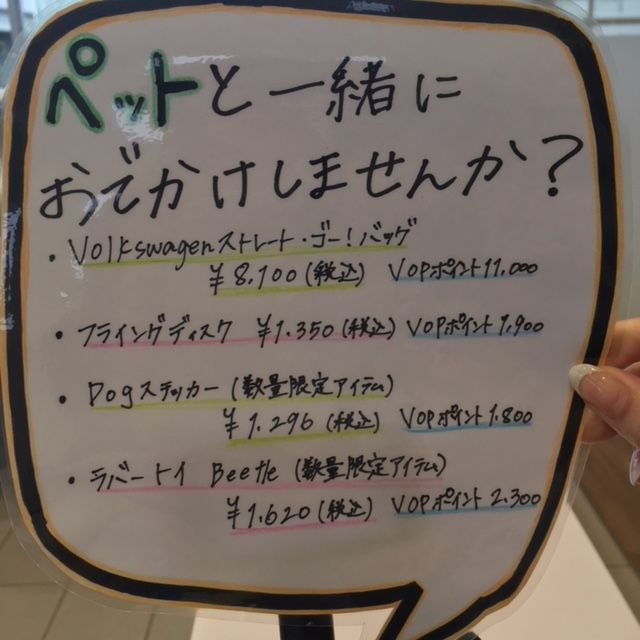 ペットと一緒に
おでかけしませんか？
・Volkswagenストレート・ゴー！バッグ
¥8.100(税込) VOPポイント11.000
・フライングディスク ¥1.350(税込) VOPポイント1.900
・Dogステッカー(数量限定アイテム)
¥1.296(税込) VOPポイント1.800
・ラバートイ Beetle(数量限定アイテム)
¥1.620(税込) VOPポイント2.300